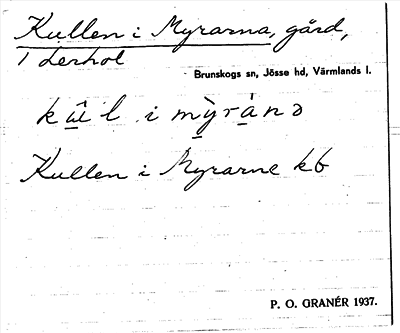 Kullen i Myrarna, gård,
1 Lerhol
Brunskogs sn, Jösse hd, Värmlands l.
kω̂l i mỳránə
Kullen i Myrarne kb
P. O. GRANÉR 1937.